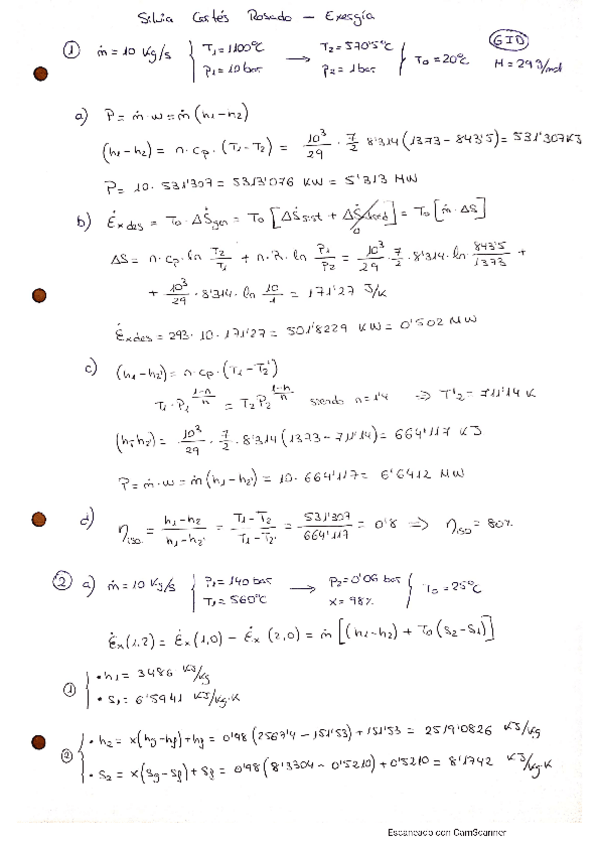 Silvia Cortés Rosado - Exergía
GID
① ṁ = 10 Kg/s { T₁ = 1100°C → T₂ = 570'5°C } T₀ = 20°C M = 29 g/mol
P₁ = 10 bar P₂ = 1 bar
a) P = ṁ · w = ṁ (h₁ - h₂)
(h₁ - h₂) = n · cp · (T₁ - T₂) = 10³/29 · 7/2 · 8'314 (1373 - 843'5) = 531'307 KJ
P = 10 · 531'307 = 5313'076 KW = 5'313 MW
b) Ėxdes = T₀ · ΔṠgen = T₀ [ΔṠsist + ΔṠ 0] = T₀ [ṁ · ΔS]
ΔS = n · cp · ln T₂/T₁ + n · R · ln P₁/P₂ = 10³/29 · 7/2 · 8'314 · ln 843'5/1373 +
+ 10³/29 · 8'314 · ln 10/1 = 171'27 J/K
Ėxdes = 293 · 10 · 171'27 = 501'8229 KW = 0'502 MW
c) (h₁ - h₂') = n · cp · (T₁ - T₂')
T₁ · P₁^(1-n/n) = T₂ P₂^(1-n/n) siendo n = 1'4 ⇒ T'₂ = 711'14 K
(h₁ h₂) = 10³/29 · 7/2 · 8'314 (1373 - 711'14) = 664'117 KJ
P = ṁ · w = ṁ (h₁ - h₂') = 10 · 664'117 = 6'6412 MW
d) ηiso = h₁ - h₂/h₁ - h₂' = T₁ - T₂/T₁ - T₂' = 531'307/664'117 = 0'8 ⇒ ηiso = 80%
② a) ṁ = 10 Kg/s { P₁ = 140 bar → P₂ = 0'06 bar } T₀ = 25°C
T₁ = 560°C x = 98%
Ėx (1,2) = Ėx (1,0) - Ėx (2,0) = ṁ [(h₁ - h₂) + T₀ (S₂ - S₁)]
① { • h₁ = 3486 KJ/Kg
• S₁ = 6'5941 KJ/Kg·K
② { • h₂ = x (hg - hf) + hf = 0'98 (2567'4 - 151'53) + 151'53 = 2519'0826 KJ/Kg
• S₂ = x (Sg - Sf) + Sf = 0'98 (8'3304 - 0'5210) + 0'5210 = 8'1742 KJ/Kg·K
Escaneado con CamScanner